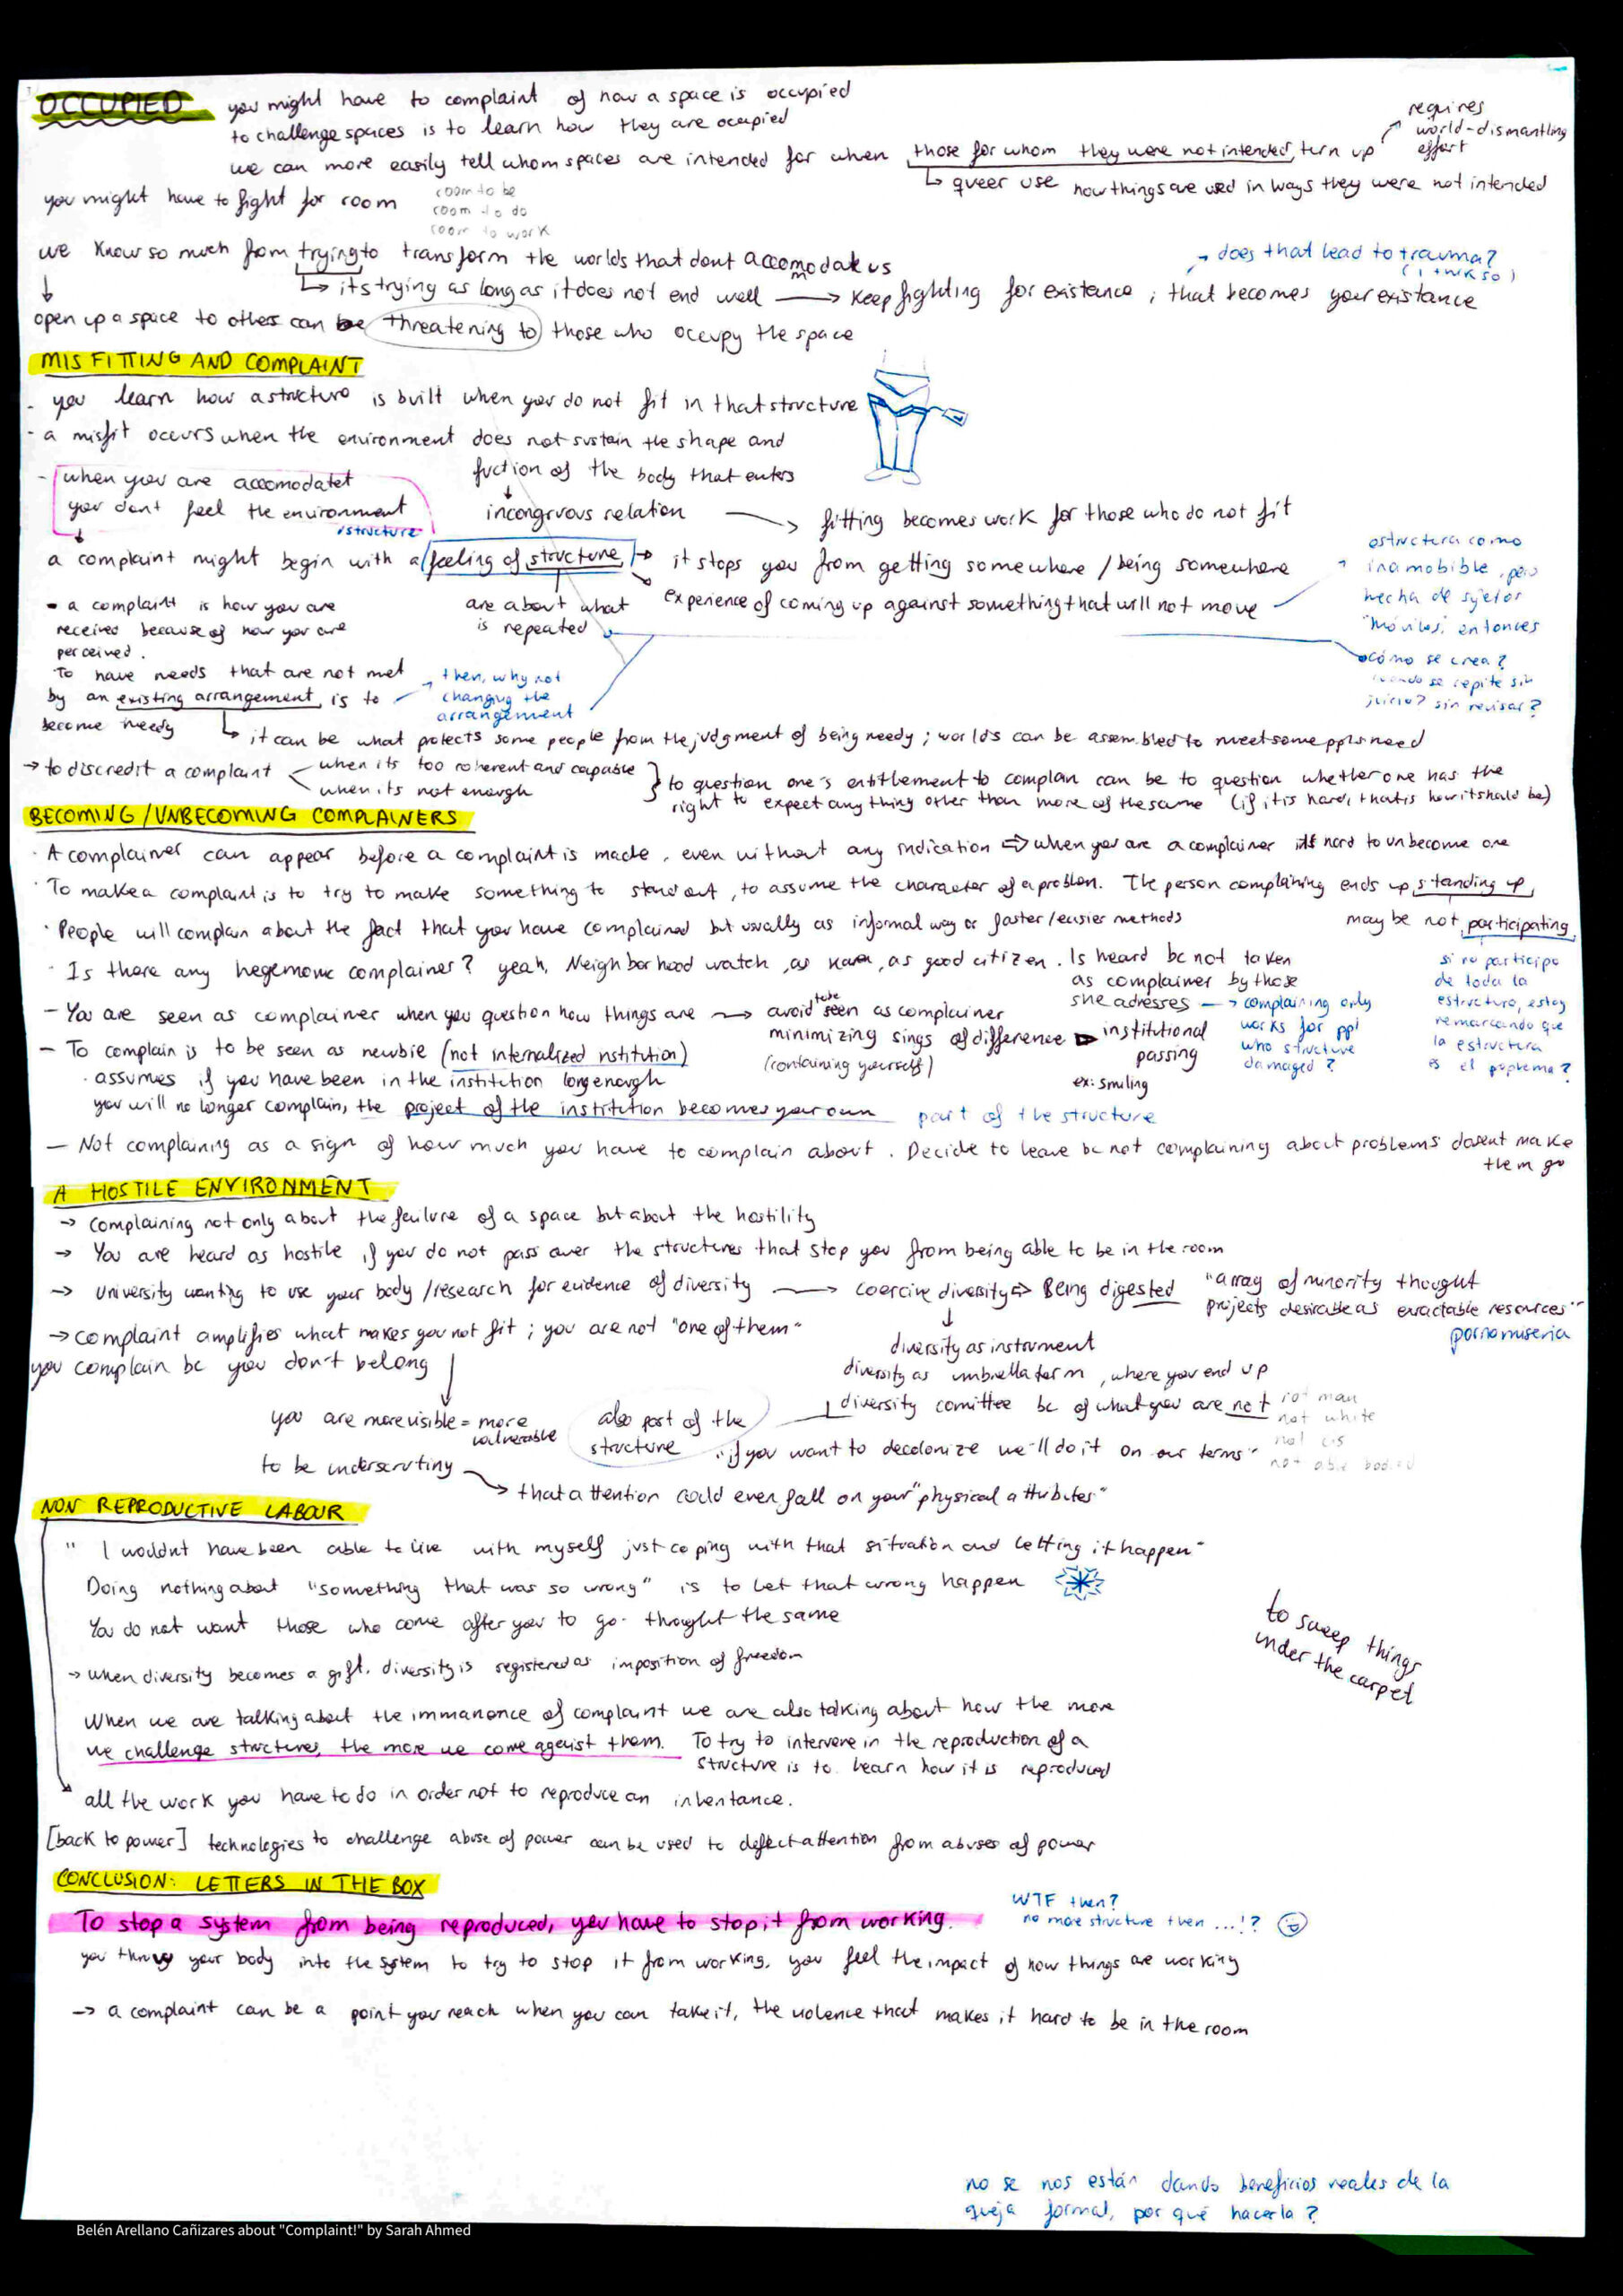 OCCUPIED
you might have to complaint of how a space is occupied
to challenge spaces is to learn how they are occupied
we can more easily tell whom spaces are intended for when those for whom they were not intended, turn up
requires
world-dismantling
effort
queer use how things are used in ways they were not intended
you might have to fight for room
room to be
room to do
room to work
we know so much from trying to transform the worlds that dont accomodate us
its trying as long as it does not end well → keep fighting for existance; that becomes your existance
→ does that lead to trauma?
(i think so)
open up a space to others can be threatening to those who occupy the space
MISFITTING AND COMPLAINT
- you learn how a structure is built when you do not fit in that structure
- a misfit occurs when the environment does not sustain the shape and
fuction of the body that enters
- when your are accomodatet
you dont feel the environment
structure
incongruous relation → fitting becomes work for those who do not fit
a complaint might begin with a feeling of structure → it stops you from getting somewhere / being somewhere
experience of coming up against something that will not move
estructura como
inamobible, pero
hecha de sujetos
"móviles", entonces
cómo se crea?
cuando se repite sin
juicio? sin revisar?
are about what
is repeated
- a complaint is how you are
received because of how you are
perceived.
To have needs that are not met
by an existing arrangement, is to
become needy
→ then, why not
changing the
arrangement
it can be what protects some people from the judgment of being needy; worlds can be assembled to meet some ppls need
→ to discredit a complaint
when its too coherent and capable
when its not enough
to question one's entitlement to complain can be to question whether one has the
right to expect anything other than more of the same (if it is hard, that is how it shold be)
BECOMING/UNBECOMING COMPLAINERS
· A complainer can appear before a complaint is made, even without any indication ⇨ when you are a complainer its hard to unbecome one
· To make a complaint is to try to make something to stand out, to assume the character of a problem. The person complaining ends up standing up,
may be not participating
· People will complain about the fact that you have complained but usually as informal way or faster/easier methods
· Is there any hegemonic complainer? yeah, Neighborhood watch, as , as good citizen. Is heard bc not taken
as complainer by those
she adresses → complaining only
works for ppl
who structure
damaged?
si no participo
de toda la
estructura, estoy
remarcando que
la estructura
es el poplema?
- You are seen as complainer when you question how things are → avoid to be seen as complainer
minimizing sings of difference ▷ institutional
passing
(containing yourself)
ex: smiling
- To complain is to be seen as newbie (not internalized nstitution)
· assumes if you have been in the institution long enough
you will no longer complain, the project of the institution becomes your own
part of the structure
- Not complaining as a sign of how much you have to complain about. Decide to leave bc not complaining about problems dosent make
them go
A HOSTILE ENVIRONMENT
→ complaining not only about the failure of a space but about the hostility
→ You are heard as hostile if you do not pass over the structures that stop you from being able to be in the room
→ University wanting to use your body/research for evidence of diversity → coercive diversity ⇨ Being digested "array of minority thought
projects desirable as exractable resources"
pornomiseria
→ complaint amplifies what makes you not fit; you are not "one of them"
you complain bc you don't belong
diversity as instrument
diversity as umbrella term, where you end up
diversity comittee bc of what you are not
not man
not white
not cis
not able bodied
you are more visible = more
vulnerable
also part of the
structure
"if you want to decolonize we'll do it on our terms"
to be underscrutiny
→ that attention could even fall on your "physical attributes"
NON REPRODUCTIVE LABOUR
" I wouldnt have been able to live with myself just coping with that situation and letting it happen"
Doing nothing about "something that was so wrong" is to let that wrong happen
You do not want those who come after you to go thought the same
to sweep things
under the carpet
→ when diversity becomes a gift, diversity is registered as imposition of freedom
When we are talking about the immanance of complaint we are also talking about how the more
we challenge structures, the more we come ageist them. To try to intervene in the reproduction of a
structure is to learn how it is reproduced
all the work you have to do in order not to reproduce an inheritance.
[back to power] technologies to challenge abuse of power can be used to deflect attention from abuses of power
CONCLUSION: LETTERS IN THE BOX
To stop a system from being reproduced, you have to stop it from working.
WTF then?
no more structure then ...!?
you throw your body into the system to try to stop it from working, you feel the impact of how things are working
→ a complaint can be a point you reach when you can take it, the violence that makes it hard to be in the room
no se nos están dando beneficios reales de la
queja formal, por qué hacerla?
Belén Arellano Cañizares about "Complaint!" by Sarah Ahmed